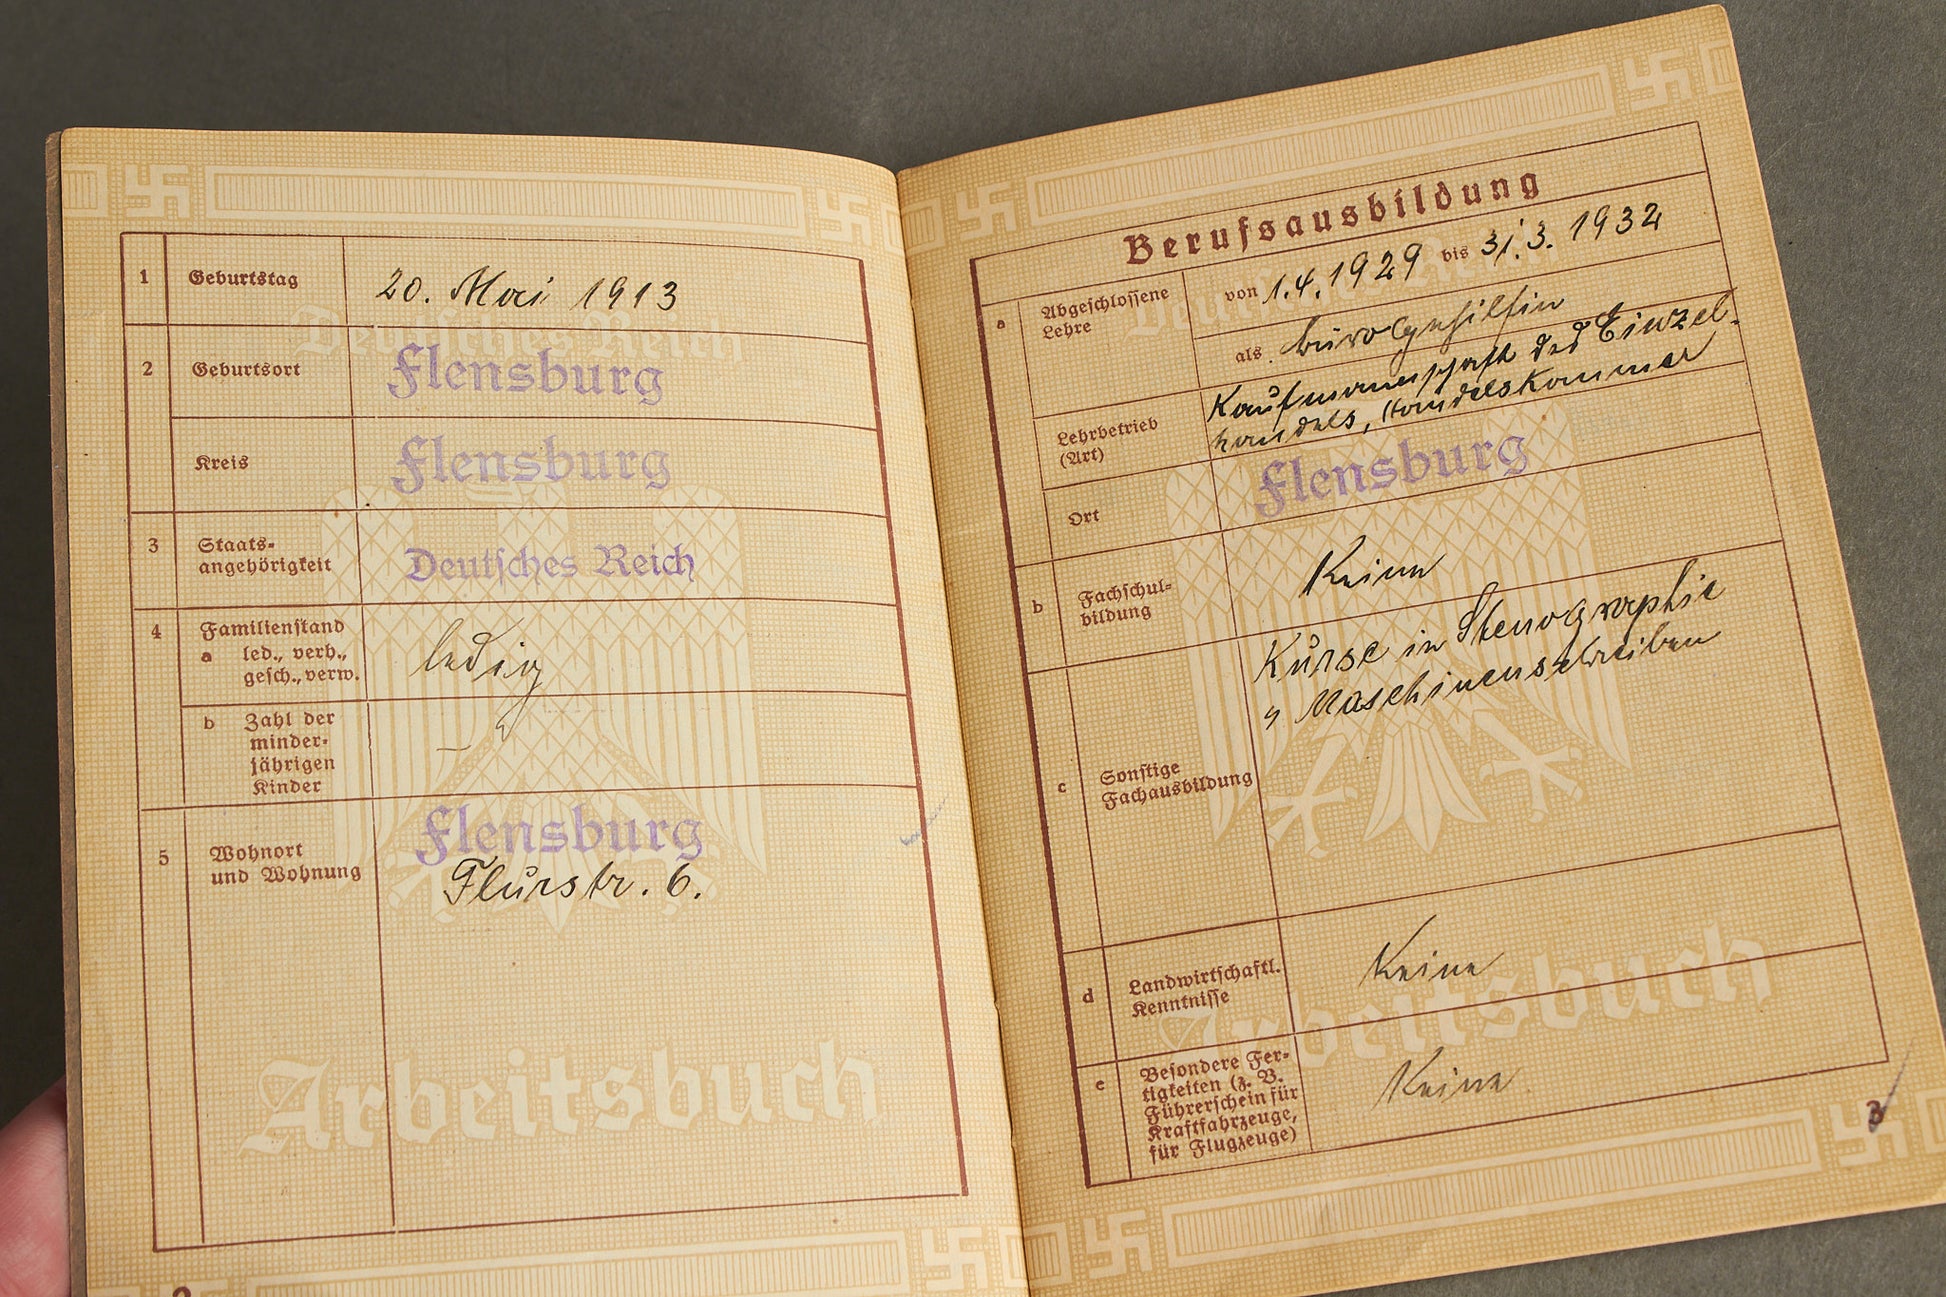 1 Geburtstag 20. Mai 1913
Deutsches Reich
2 Geburtsort Flensburg
Kreis Flensburg
3 Staats-
angehörigkeit Deutsches Reich
4 Familienstand
a led., verh.,
gesch., verw. ledig
b Zahl der
minder-
jährigen
Kinder —
5 Wohnort
und Wohnung Flensburg
Flurstr. 6.
Arbeitsbuch
Berufsausbildung
a Abgeschlossene
Lehre
von 1.4.1929 bis 31.3.1932
als Bürogehilfin
Lehrbetrieb
(Art)
Kaufmannschaft des Einzel-
handels, Handelskammer
Ort Flensburg
b Fachschul-
bildung Keine
c Sonstige
Fachausbildung
Kurse in Stenographie
Maschinenschreiben
d Landwirtschaftl.
Kenntnisse Keine
Arbeitsbuch
e Besondere Fer-
tigkeiten (z. B.
Führerschein für
Kraftfahrzeuge,
für Flugzeuge) Keine
3